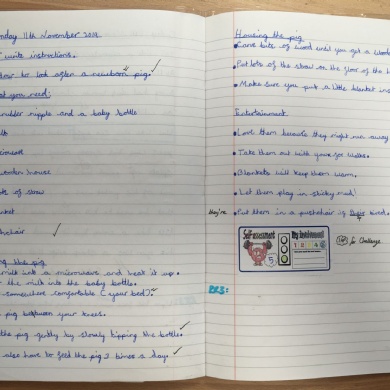 nday 11th November 2019
write instructions.
How to look after a newborn pig.
at you need:
rubber nipple and a baby bottle
ilk
icrowave
wooden house
ots of straw
lanket
shchair
ing the pig
milk into a microwave and heat it up.
the milk into the baby bottle.
somewhere comfortable (your bed).
pig between your knees.
the pig gently by slowly tipping the bottle.
also have to feed the pig 3 times a day.
Housing the pig
bits of wood until you get a
Put lots of the straw on the floor of the
Make sure you put a little blanket
Entertainment
Love them because they might run away
Take them out with you for walks.
Blankets will keep them warm.
Let them play in sticky mud!
they're
Put them in a pushchair if their
Self assessment
My Involvement
1 2 3 4 5
5
for challenge